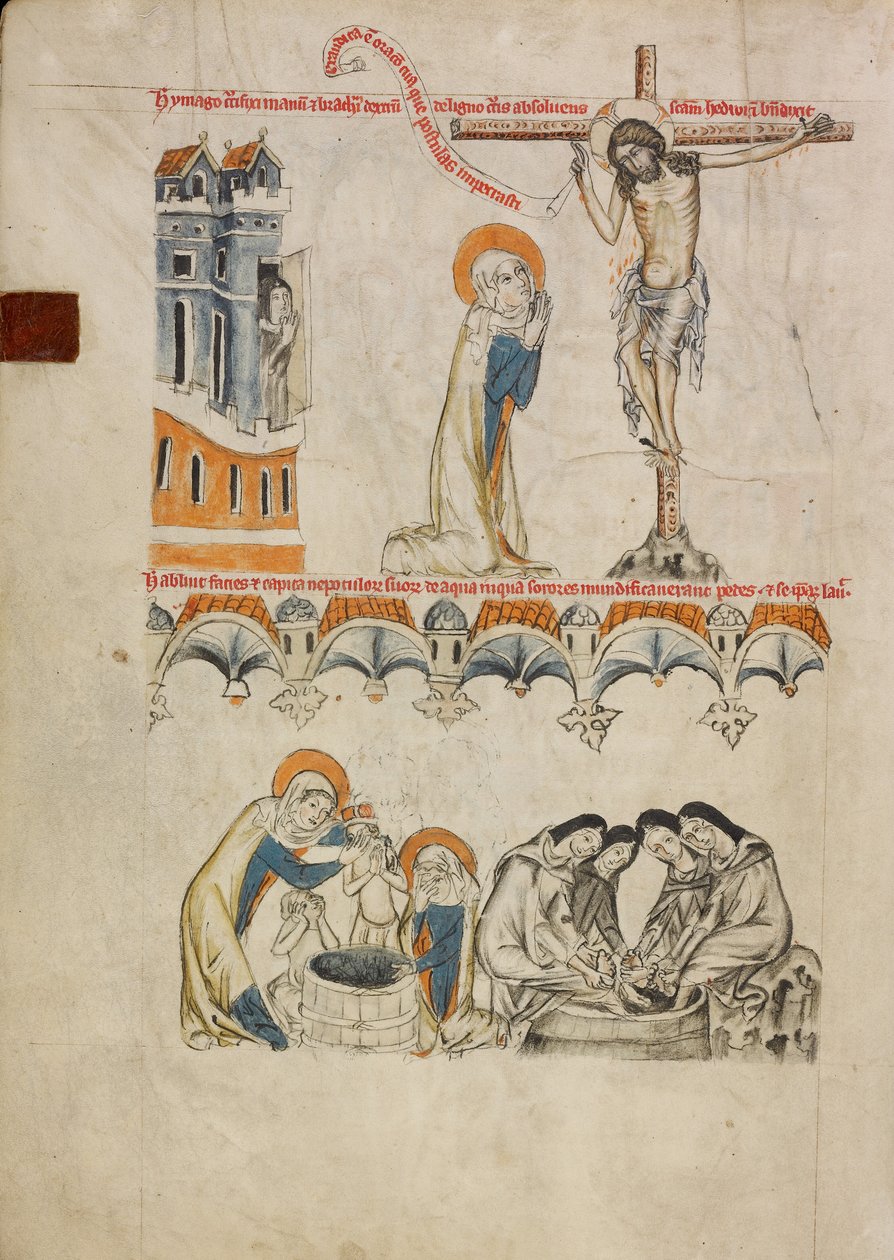 Exaudita ē oracō tua que postulas impetrasti
Hͥ ymago cͨifixi manū & brachiū dextrū de ligno cͨis absoluens scām hedwigē bn̄dixit
Hͥ abluit facies & capita nepotuloꝝ suoꝝ de aqua in qua sorores mundificauerant pedes & se ip̄aꝫ lauͭ.